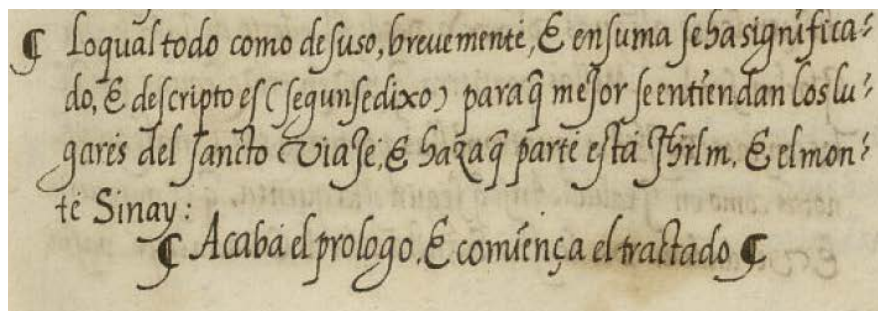 ¶ Lo qual todo como de suso, brevemente, & en suma se ha significa-
do, & descripto es (segun se dixo) para q̃ mejor se entiendan los lu-
gares del sancto viaje, & haza q̃ parte esta Jhrlm. & el mon-
te Sinay:
¶ Acaba el prologo. & comiença el tractado ¶